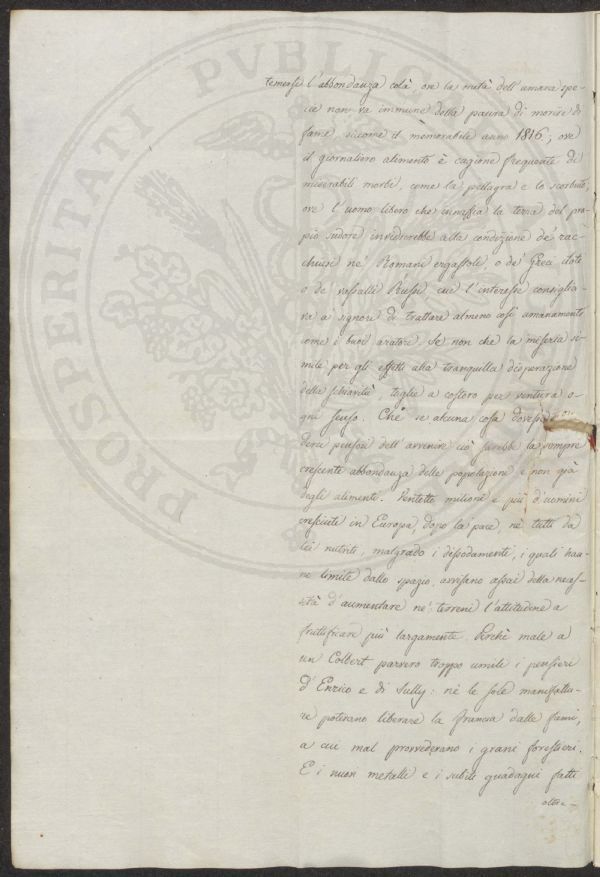 PROSPERITATI PVBLIC
temersi l'abbondanza colà, ove la metà dell'umana spe-
cie non va immune dalla paura di morire di
fame, siccome il memorabile anno 1816; ove
il giornaliero alimento è cagione frequente di
miserabili morbi, come la pellagra e lo scorbuto,
ove l'uomo libero che innaffia la terra del pro-
pio sudore invidierebbe alla condizione de' rac-
chiusi ne' Romani ergastoli, o de' Greci iloti
o de' vassalli Russi, cui l'interesse consiglia-
va a' signori di trattare almeno così umanamente
come i buoi aratori. Se non che la miseria si-
mile per gli effetti alla tranquilla disperazione
della schiavitù, toglie a costoro per ventura o-
gni senso. Chè se alcuna cosa dovesse
dere pensosi dell'avvenire ciò sarebbe la sempre
crescente abbondanza delle popolazioni e non già
degli alimenti. Ventotto milioni e più d'uomini
cresciuti in Europa, dopo la pace, nè tutti da
lei nutriti, malgrado i dissodamenti, i quali han-
no limite dallo spazio, avvisano assai della neces-
sità d'aumentare ne' terreni l'attitudine a
fruttificare più largamente. Perchè male a
un Colbert parvero troppo umili i pensieri
d'Enrico e di Sully: nè le sole manifattu-
re poterano liberare la Francia dalle fami,
a cui mal provvederano i grani forestieri.
E i nuovi metalli e i subiti guadagni fatti
oltre-